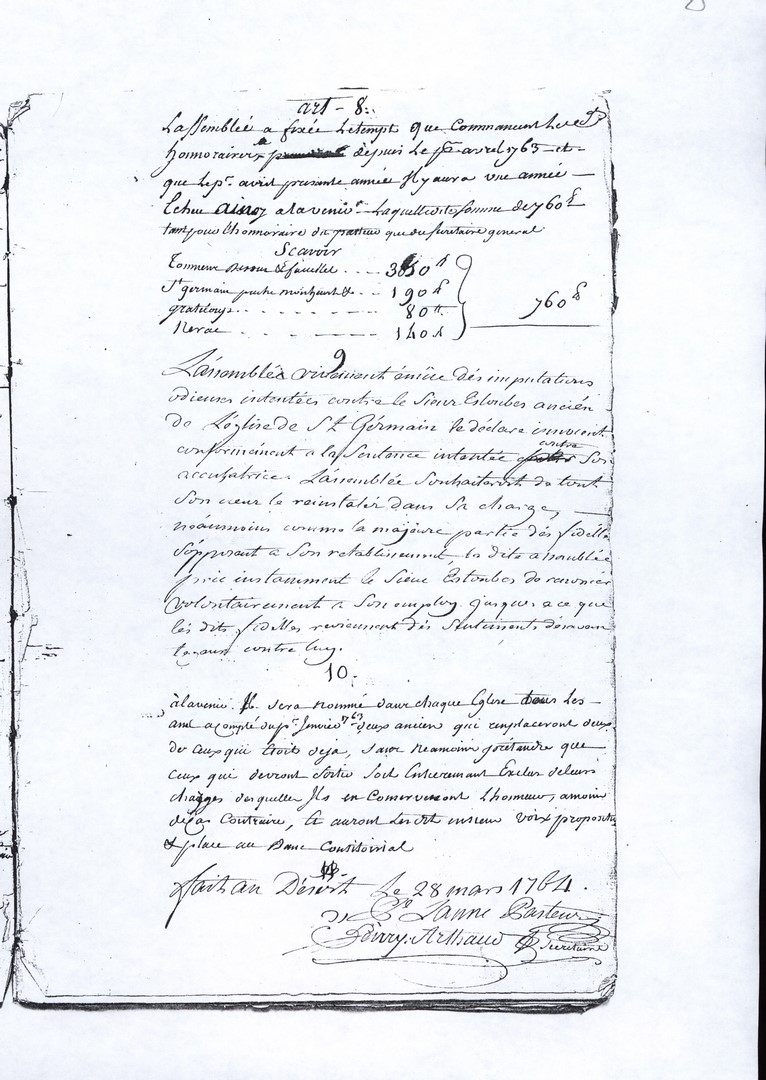 art - 8.
Lassemblée a fixée Letempt que Commancent Les d.
honnoraires depuis Le pr. avril 1763 et
que Lepr. avril presante année Il yaura une année
Echeu ainsy alavenir Laquelle dite somme de 760 #
tant pour Lhonnoraire du pasteur que du secretaire general
Scavoir
Tonneins & fauillet .... 350 #
St germain puche monheurt & ... 190 #
gratelous ........ 80 #
Nerac ....... 140 #
760 #
9
L'assemblée vivement émüe dés imputations
odieuses intentées contre le Sieur Estoubes ancién
de L'église de St Gérmain le déclare innocent
conformément a la Sentence intentée contre Son
accusatrice. L'assemblée Souhaiteroit de tout
Son cœur le reinstalér dans Sa charge,
néanmoins comme la majeure partie dés fidelles
S'opposent a Son retablissement, la dite assemblée
prie instamment le Sieur Estoubes de renoncér
volontairement a Son employ, jusques a ce que
lés dits fidelles reviennent dés Sentiments désavan
tageux contre luy.
10.
àlavenir Il sera nommé dans chaque Eglise tous Les
ans acompté du pr. Janvier 1763 deux ancien qui remplaceront deux
de ceux qui étoit deja, sans néamoin prétendre que
ceux qui devront Sortir Soit Entierement Exclus de leurs
charges desquelles Ils en Conserveront Lhonneur, amoin
de cas Contraire, & auront Les dit ancien voix
& place au Banc Consistorial
fait au Désért Le 28 mars 1764.
Lanne Pasteur
Périry. Arthaud Secrétaire